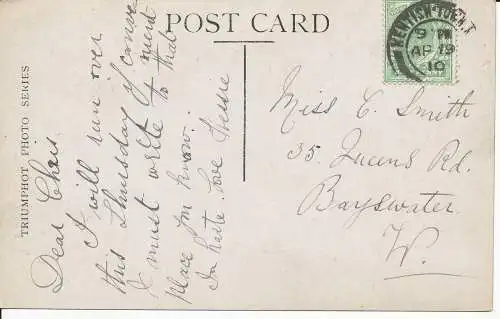 POST CARD
TRIUMPHOT PHOTO SERIES
KENTISH TOWN
9 PM
AP 19
10
Dear Chris
I will run over
this Thursday if conve
nient
I must write to that
place you know.
In haste love
Miss C. Smith
35. Queens Rd.
Bayswater.
W.